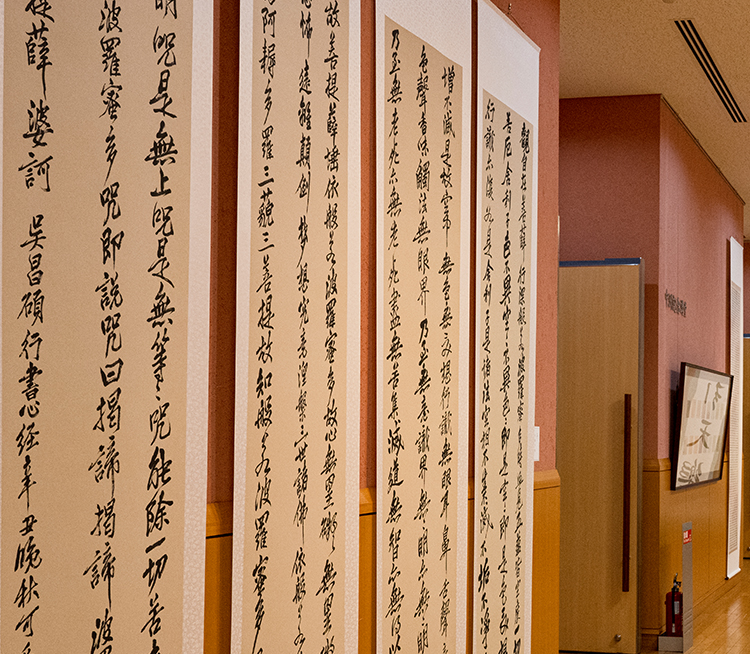 觀自在菩薩行深般若波羅蜜多時照見五蘊皆空度一切
苦厄舍利子色不異空空不異色色即是空空即是色受想
行識亦復如是舍利子是諸法空相不生不滅不垢不淨
增不減是故空中無色無受想行識無眼耳鼻舌身
色聲香味觸法無眼界乃至無意識界無無明亦無無明
乃至無老死亦無老死盡無苦集滅道無智亦無得以
故菩提薩埵依般若波羅蜜多故心無罣礙無罣礙
恐怖遠離顛倒夢想究竟涅槃三世諸佛依般若
阿耨多羅三藐三菩提故知般若波羅蜜多
明咒是無上咒是無等々咒能除一切苦
波羅蜜多咒即說咒曰揭諦揭諦波
提薩婆訶 吳昌碩行書心經辛丑晚秋可